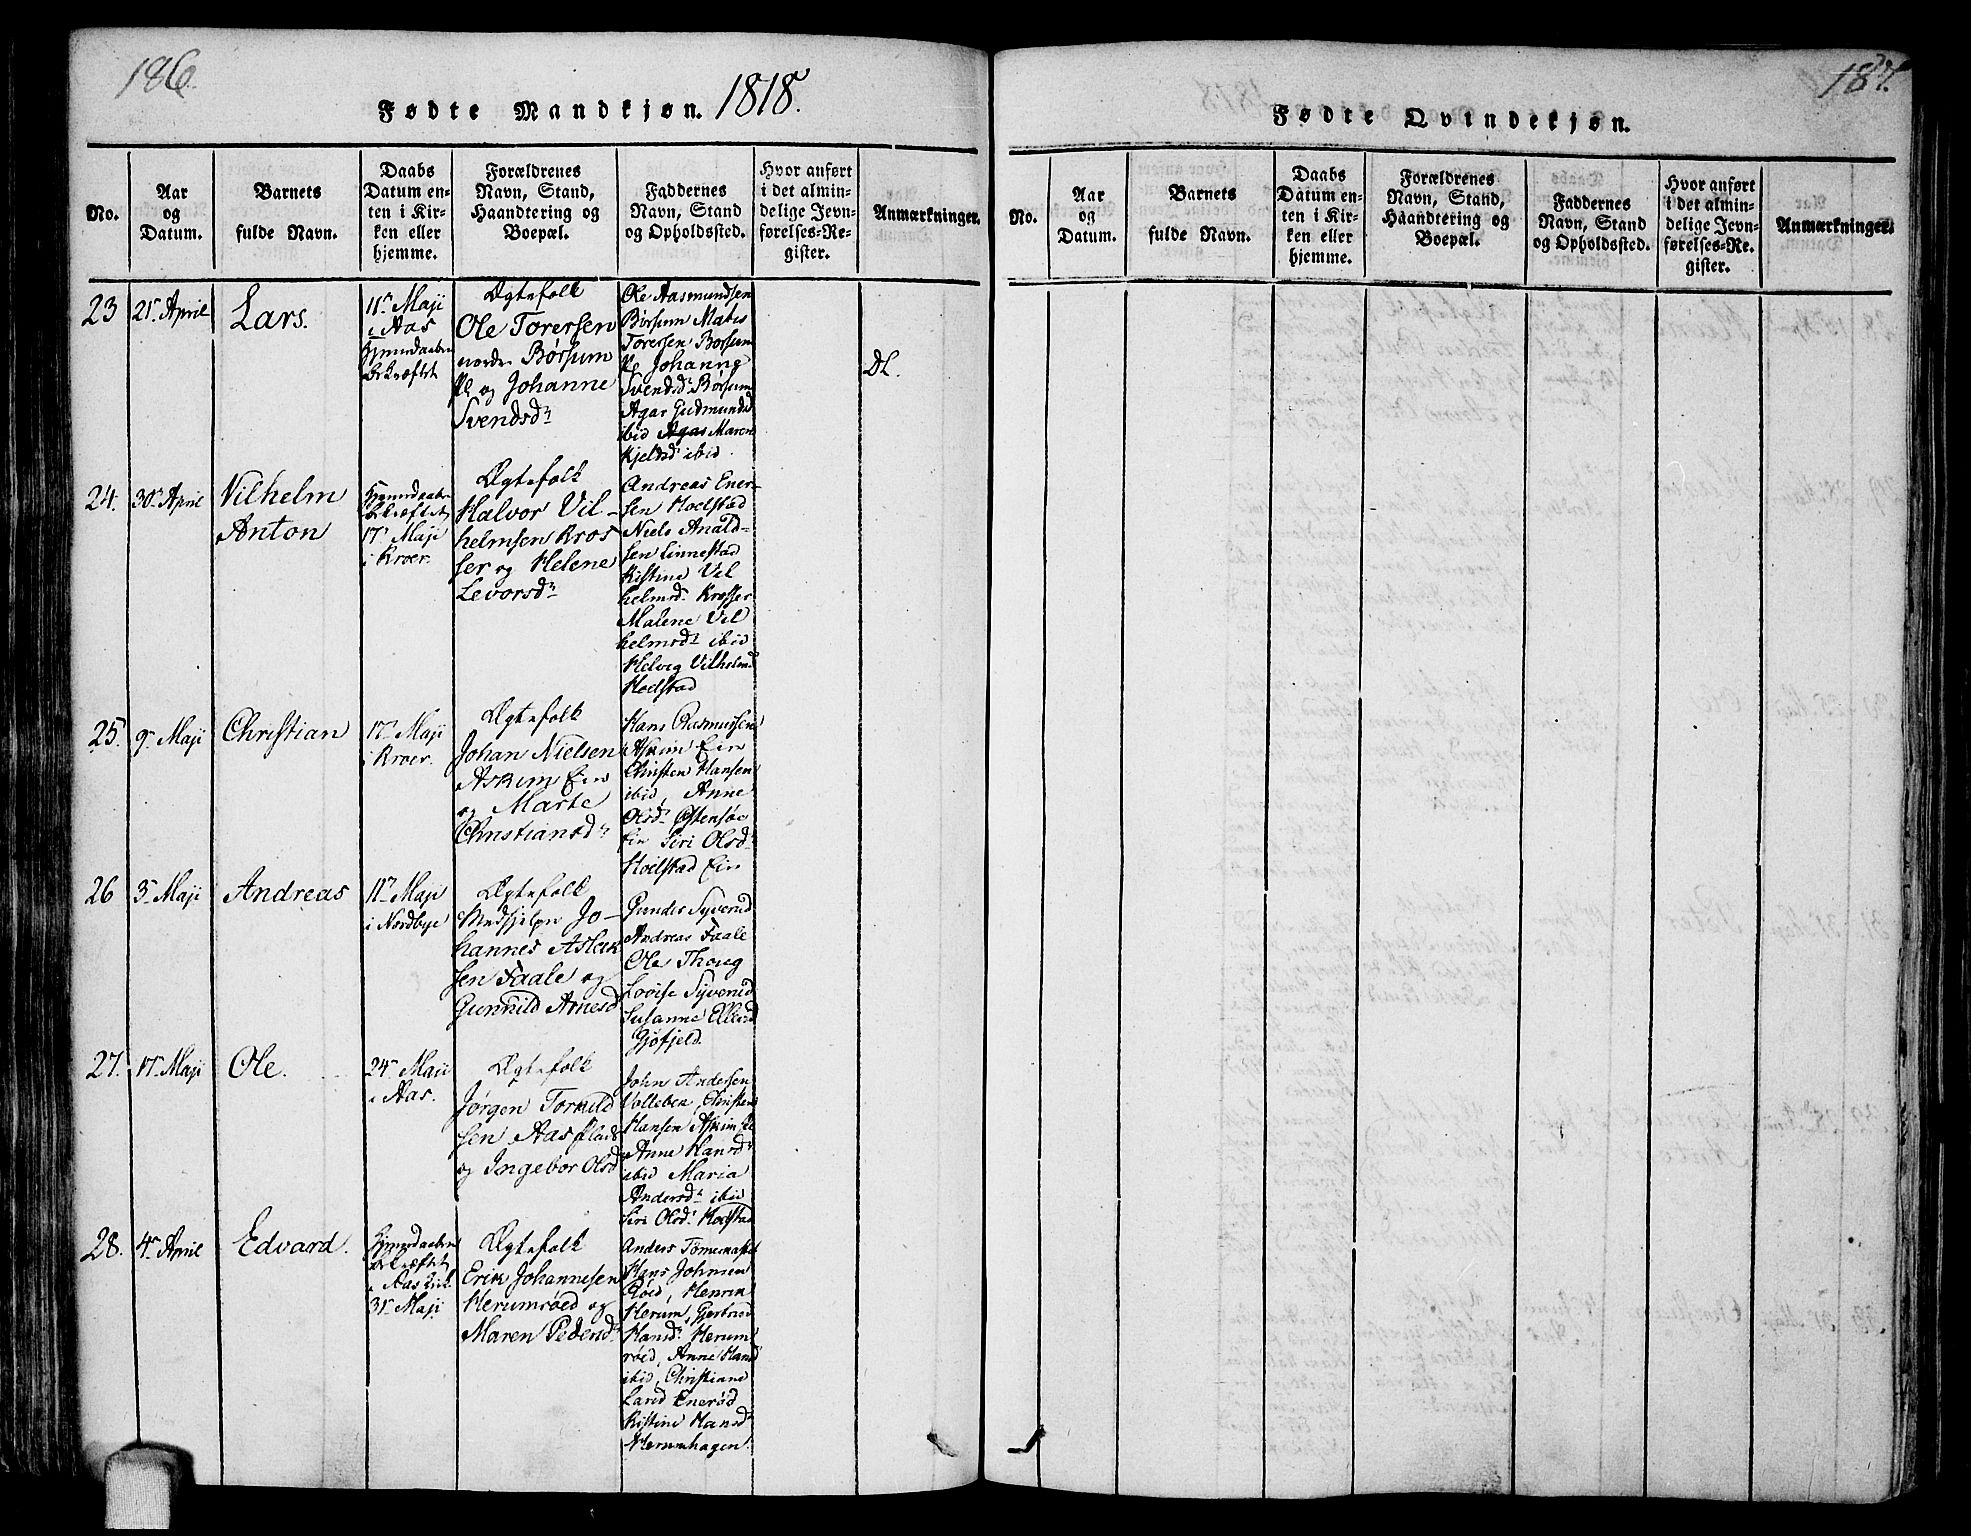 186.
Fødte Mandkjøn. 1818.
No.
Aar og Datum.
Barnets fulde Navn.
Daabs Datum en-
ten i Kir-
ken eller
hjemme.
Forældrenes
Navn, Stand,
Haandtering og
Boepæl.
Faddernes
Navn, Stand
og Opholdssted.
Hvor anført
i det almin-
delige Jevn-
førelses-Re-
gister.
Anmærkninger.
23
21r April
Lars.
11r Maji
i Aas
Hjemmedaaben
Bekræftet
Ægtefolk
Ole Torersen
nordre Børsum
Pl og Johanne
Svendsdr
Ole Aasmundsen
Børsum Mates
Torersen Borsum
Pl Johanne
Svendsd Børsum
Agar Gudmundsd
ibid Agas Maren
Kjeldsd ibid.
24.
30r April
Vilhelm
Anton
Hjemmedaaben
Bekræftet
17r Maji
i Kroer.
Ægtefolk
Halvor Vil-
helmsen Kros
ser og Helene
Levorsdr
Andreas Ener-
sen Hoelstad
Niels Anald-
sen Linnestad
Kistine Vil
helmsd. Krosser
Malene Vil
helmsdr ibid
Helvig Vilhelmsd
Hoelstad
25.
9r Maji
Christian
17r Maji
i Kroer.
Ægtefolk
Johan Nielsen
Askim Eie
og Marte
Christiansdr
Hans Rasmussen
Askim Eie
Christen Hansen
ibid, Anne
Olsdr Østensøe
Eie Siri Olsdr
Hoelstad Eie
26
3r Maji
Andreas
11r Maji
i Nordbye
Ægtefolk
Medhjelper Jo-
hannes Aslak
sen Faale og
Gunhild Arnesd
Gunder Syverud
Andreas Faale
Ole Thoug
Lovise Syverud
Susanne
Gjøfjeld.
27.
17r Maji
Ole.
24r Maji
i Aas.
Ægtefolk
Jørgen Torkild
sen Aas
og Ingebor Olsd
John Andersen
Volleben, Christen
Hansen Askim
Anne Hansdr
ibid Maria
Andersdr ibid
Siri Olsdr Hoelstad
28.
4r April
Edvard.
Hjemmedaaben
Bekræftet
i Aas Kirk.
31r Maji
Ægtefolk
Erik Johannesen
Herumrøed og
Maren Pedersdr
Anders
Hans Johnsen
Røed, Henrik
Herum, Gjertrud
Hansdr Herum
røed, Anne Hansd
ibid, Christiane
Larsd Enerød
Kistine Hansdr
Herumhagen.
187.
Fødte Qvindekjøn.
No.
Aar og Datum.
Barnets fulde Navn.
Daabs Datum en-
ten i Kir-
ken eller
hjemme.
Forældrenes
Navn, Stand,
Haandtering og
Boepæl.
Faddernes
Navn, Stand
og Opholdssted.
Hvor anført
i det almin-
delige Jevn-
førelses-Re-
gister.
Anmærkninger.